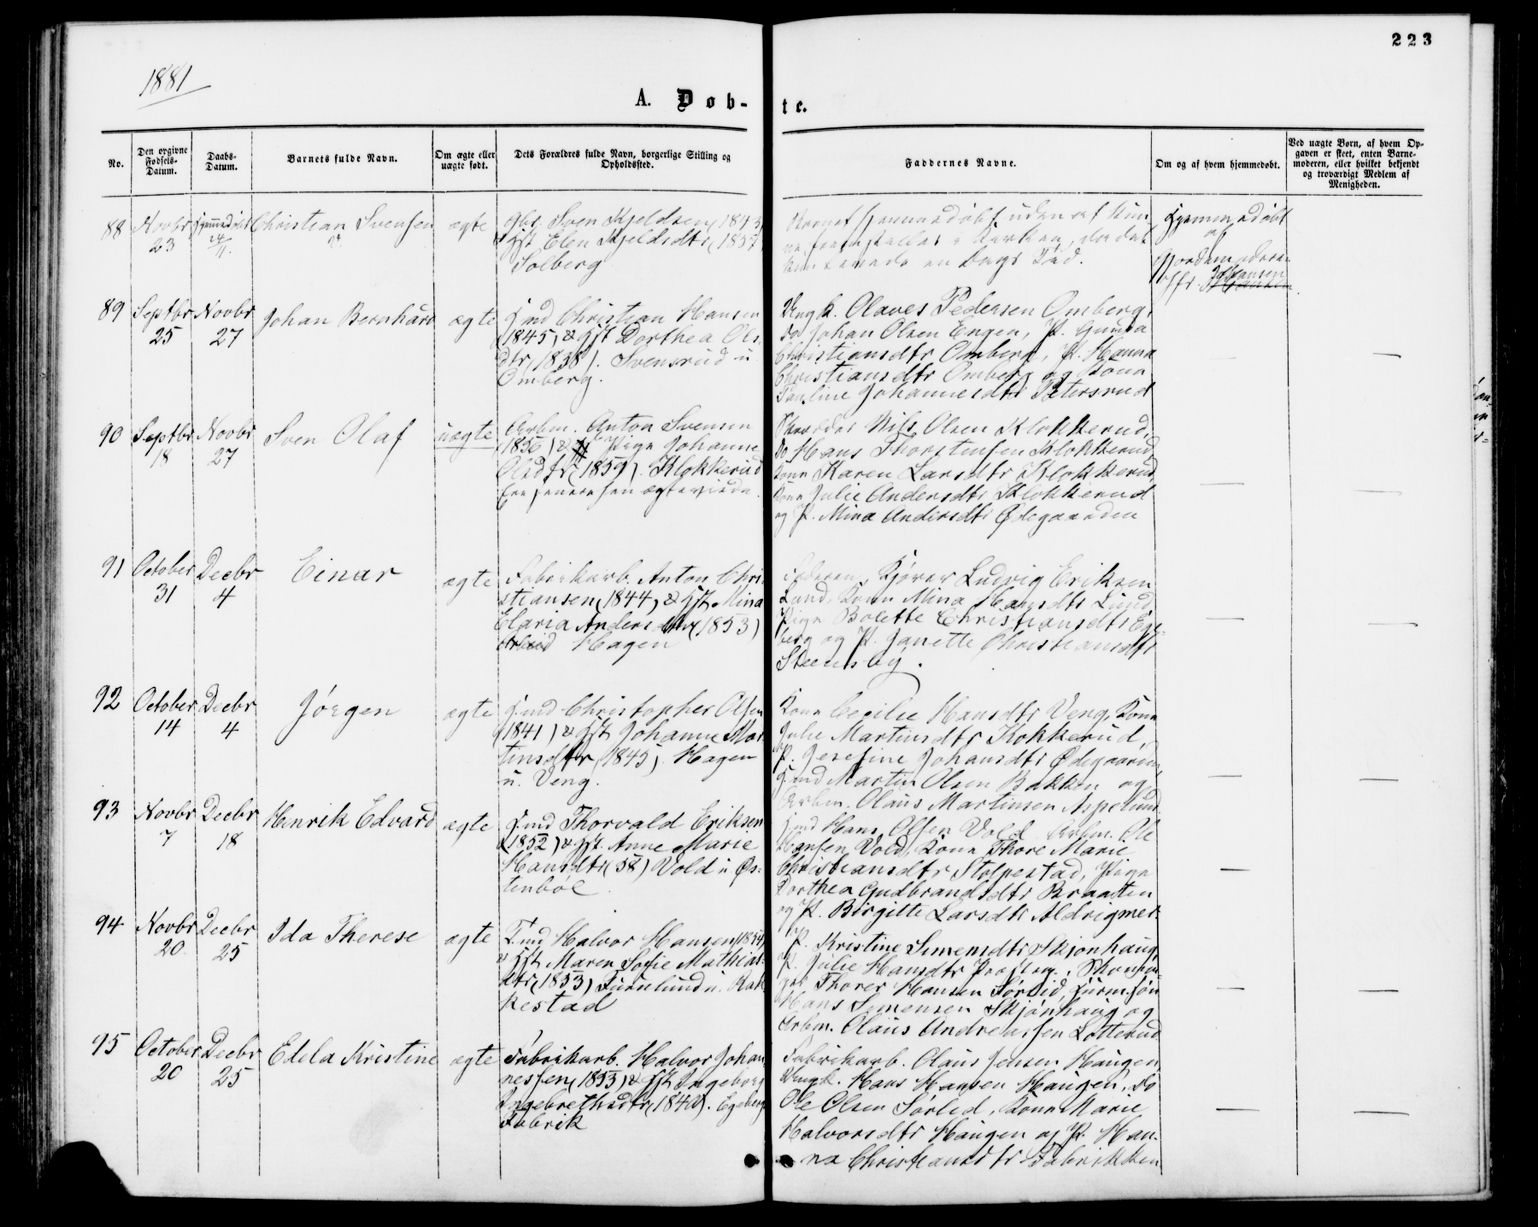 223
1881
A. Døb-te.
No.
Den opgivne Fødsels-Datum.
Daabs-Datum.
Barnets fulde Navn.
Om ægte eller uægte født.
Dets Forældres fulde Navn, borgerlige Stilling og Opholdssted.
Faddernes Navne.
Om og af hvem hjemmedøbt.
Ved uægte Børn, af hvem Opgaven er skeet, enten Barnemoderen, eller hvilket bekjendt og troværdigt Medlem af Menigheden.
88 Novbr 23 Hjemmedøbt Christian Svensen ægte
Gbr. Sven Kjeldsen (1843)
Hst Elen Kjeldsdtr (1857)
Solberg
Barnet hjemmedøbt uden at kun
en Dags Tid.
Hjemmedøbt
af
Jordemoderen
89 Septbr 25 Novbr 27 Johan Bernhard ægte
Jmd Christian Hansen
(1845) & Hst Dorthea Ols
dtr (1838). Svensrud u
Omberg.
Ungk. Olaves Pedersen Omberg,
Do Johan Olsen Engen, P. Gunda
Christiansdtr Omberg, P. Hanna
Christiansdtr Omberg og Kona
Pauline Johannesdtr Petersrud
90 Septbr 18 Novbr 27 Sven Olaf uægte
Arbm. Anton Svensen
(1856) & Pige Johanne
Olsdtr (1859). Klokkerud
Ere senere hen ægteviede.
Nils Olsen Klokkerud,
Do Hans Thorstensen Klokkerud,
Kona Karen Larsdtr Klokkerud,
Kona Julie Andersdtr Klokkerud
og P. Mina Andersdtr Ødegaarden
91 October 31 Decbr 4 Einar ægte
Fabrikarb. Anton Chri
stiansen (1844) & Hst. Mina
Elaria Andersdtr (1853)
Hagen
Faderen, Kjører Ludvig Eriksen
Lund, Kona Mina Hansdtr Lund,
Pige Bolette Christiansdtr Ege
berg og P. Janette Christiansdtr
Steensby.
92 October 14 Decbr 4 Jörgen ægte
Jmd Christopher Olsen
(1841) & Hst Johanne Mar
tinsdtr (1845). Hagen
u. Veng.
Kona Cecilie Hansdtr Veng, Kona
Julie Martinsdtr Klokkerud,
P. Josefine Johansdtr Ødegaarden,
Jmd Martin Olsen Bakken og
Arbm. Olaus Martinsen Aspelund
93 Novbr 7 Decbr 18 Henrik Edvard ægte
Jmd Thorvald Eriksen
(1852) & Hst Anne Marie
Hansdtr (58) Vold u Øs
tenböl
Jmd Hans Olsen Vold, Arbm. Ole
Hansen Vold, Kona Thore Marie
Christiansdtr Stolpestad, Pige
Dorthea Gudbrandsdtr Braatten
og P. Birgitte Larsdtr
94 Novbr 20 Decbr 25 Ida Therese ægte
Jmd Halvor Hansen (1854)
& Hst Maren Sofie Mathias
dtr (1853) Furulund u. Rak
kestad
P. Kristine Simensdtr Skjønhaug,
P. Julie Hansdtr
Thorer Hansen Sørlid,
Hans Simensen Skjønhaug og
Arbm. Olaus Andreassen Lotterud
95 October 20 Decbr 25 Edela Kristine ægte
Fabrikarb. Halvor Johan
nessen (1853) & Hst Ingeborg
Ingebretsdtr (1840). Egeberg
Fabrik
Fabrikarb. Olaus Jensen Haugen,
Ungk. Hans Hansen Haugen, Do
Ole Olsen Sørlid, Kona Marie
Halvorsdtr Haugen og P. Han
na Christiansdtr Fabrikken